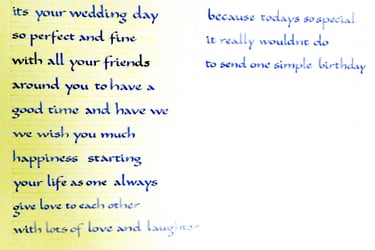 its your wedding day
so perfect and fine
with all your friends
around you to have a
good time and have we
we wish you much
happiness starting
your life as one always
give love to each other
with lots of love and laughter
because todays so special
it really wouldnt do
to send one simple birthday